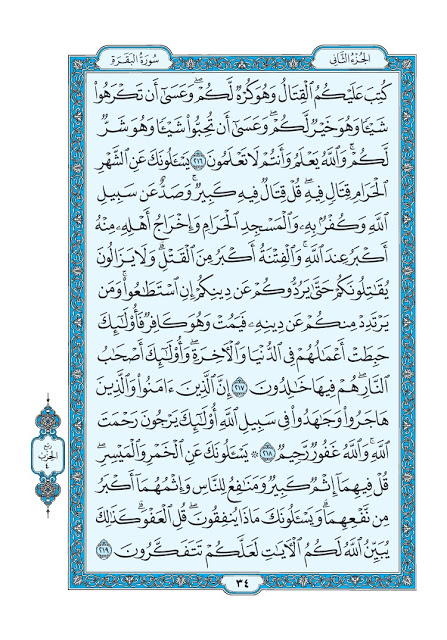 الجُزءُ الثَّانِي
سُورَةُ البَقَرَةِ
كُتِبَ عَلَيْكُمُ ٱلْقِتَالُ وَهُوَ كُرْهٌ لَّكُمْ ۖ وَعَسَىٰٓ أَن تَكْرَهُوا۟
شَيْـًٔا وَهُوَ خَيْرٌ لَّكُمْ ۖ وَعَسَىٰٓ أَن تُحِبُّوا۟ شَيْـًٔا وَهُوَ شَرٌّ
لَّكُمْ ۗ وَٱللَّهُ يَعْلَمُ وَأَنتُمْ لَا تَعْلَمُونَ ٢١٦ يَسْـَٔلُونَكَ عَنِ ٱلشَّهْرِ
ٱلْحَرَامِ قِتَالٍ فِيهِ ۖ قُلْ قِتَالٌ فِيهِ كَبِيرٌ ۖ وَصَدٌّ عَن سَبِيلِ
ٱللَّهِ وَكُفْرٌۢ بِهِۦ وَٱلْمَسْجِدِ ٱلْحَرَامِ وَإِخْرَاجُ أَهْلِهِۦ مِنْهُ
أَكْبَرُ عِندَ ٱللَّهِ ۚ وَٱلْفِتْنَةُ أَكْبَرُ مِنَ ٱلْقَتْلِ ۗ وَلَا يَزَالُونَ
يُقَـٰتِلُونَكُمْ حَتَّىٰ يَرُدُّوكُمْ عَن دِينِكُمْ إِنِ ٱسْتَطَـٰعُوا۟ ۚ وَمَن
يَرْتَدِدْ مِنكُمْ عَن دِينِهِۦ فَيَمُتْ وَهُوَ كَافِرٌ فَأُو۟لَـٰٓئِكَ
حَبِطَتْ أَعْمَـٰلُهُمْ فِى ٱلدُّنْيَا وَٱلْـَٔاخِرَةِ ۖ وَأُو۟لَـٰٓئِكَ أَصْحَـٰبُ
ٱلنَّارِ ۖ هُمْ فِيهَا خَـٰلِدُونَ ٢١٧ إِنَّ ٱلَّذِينَ ءَامَنُوا۟ وَٱلَّذِينَ
هَاجَرُوا۟ وَجَـٰهَدُوا۟ فِى سَبِيلِ ٱللَّهِ أُو۟لَـٰٓئِكَ يَرْجُونَ رَحْمَتَ
ٱللَّهِ ۚ وَٱللَّهُ غَفُورٌ رَّحِيمٌ ٢١٨ ۞ يَسْـَٔلُونَكَ عَنِ ٱلْخَمْرِ وَٱلْمَيْسِرِ ۖ
قُلْ فِيهِمَآ إِثْمٌ كَبِيرٌ وَمَنَـٰفِعُ لِلنَّاسِ وَإِثْمُهُمَآ أَكْبَرُ
مِن نَّفْعِهِمَا ۗ وَيَسْـَٔلُونَكَ مَاذَا يُنفِقُونَ ۖ قُلِ ٱلْعَفْوَ ۗ كَذَٰلِكَ
يُبَيِّنُ ٱللَّهُ لَكُمُ ٱلْـَٔايَـٰتِ لَعَلَّكُمْ تَتَفَكَّرُونَ ٢١٩
ربع
الحزب
٤
٣٤